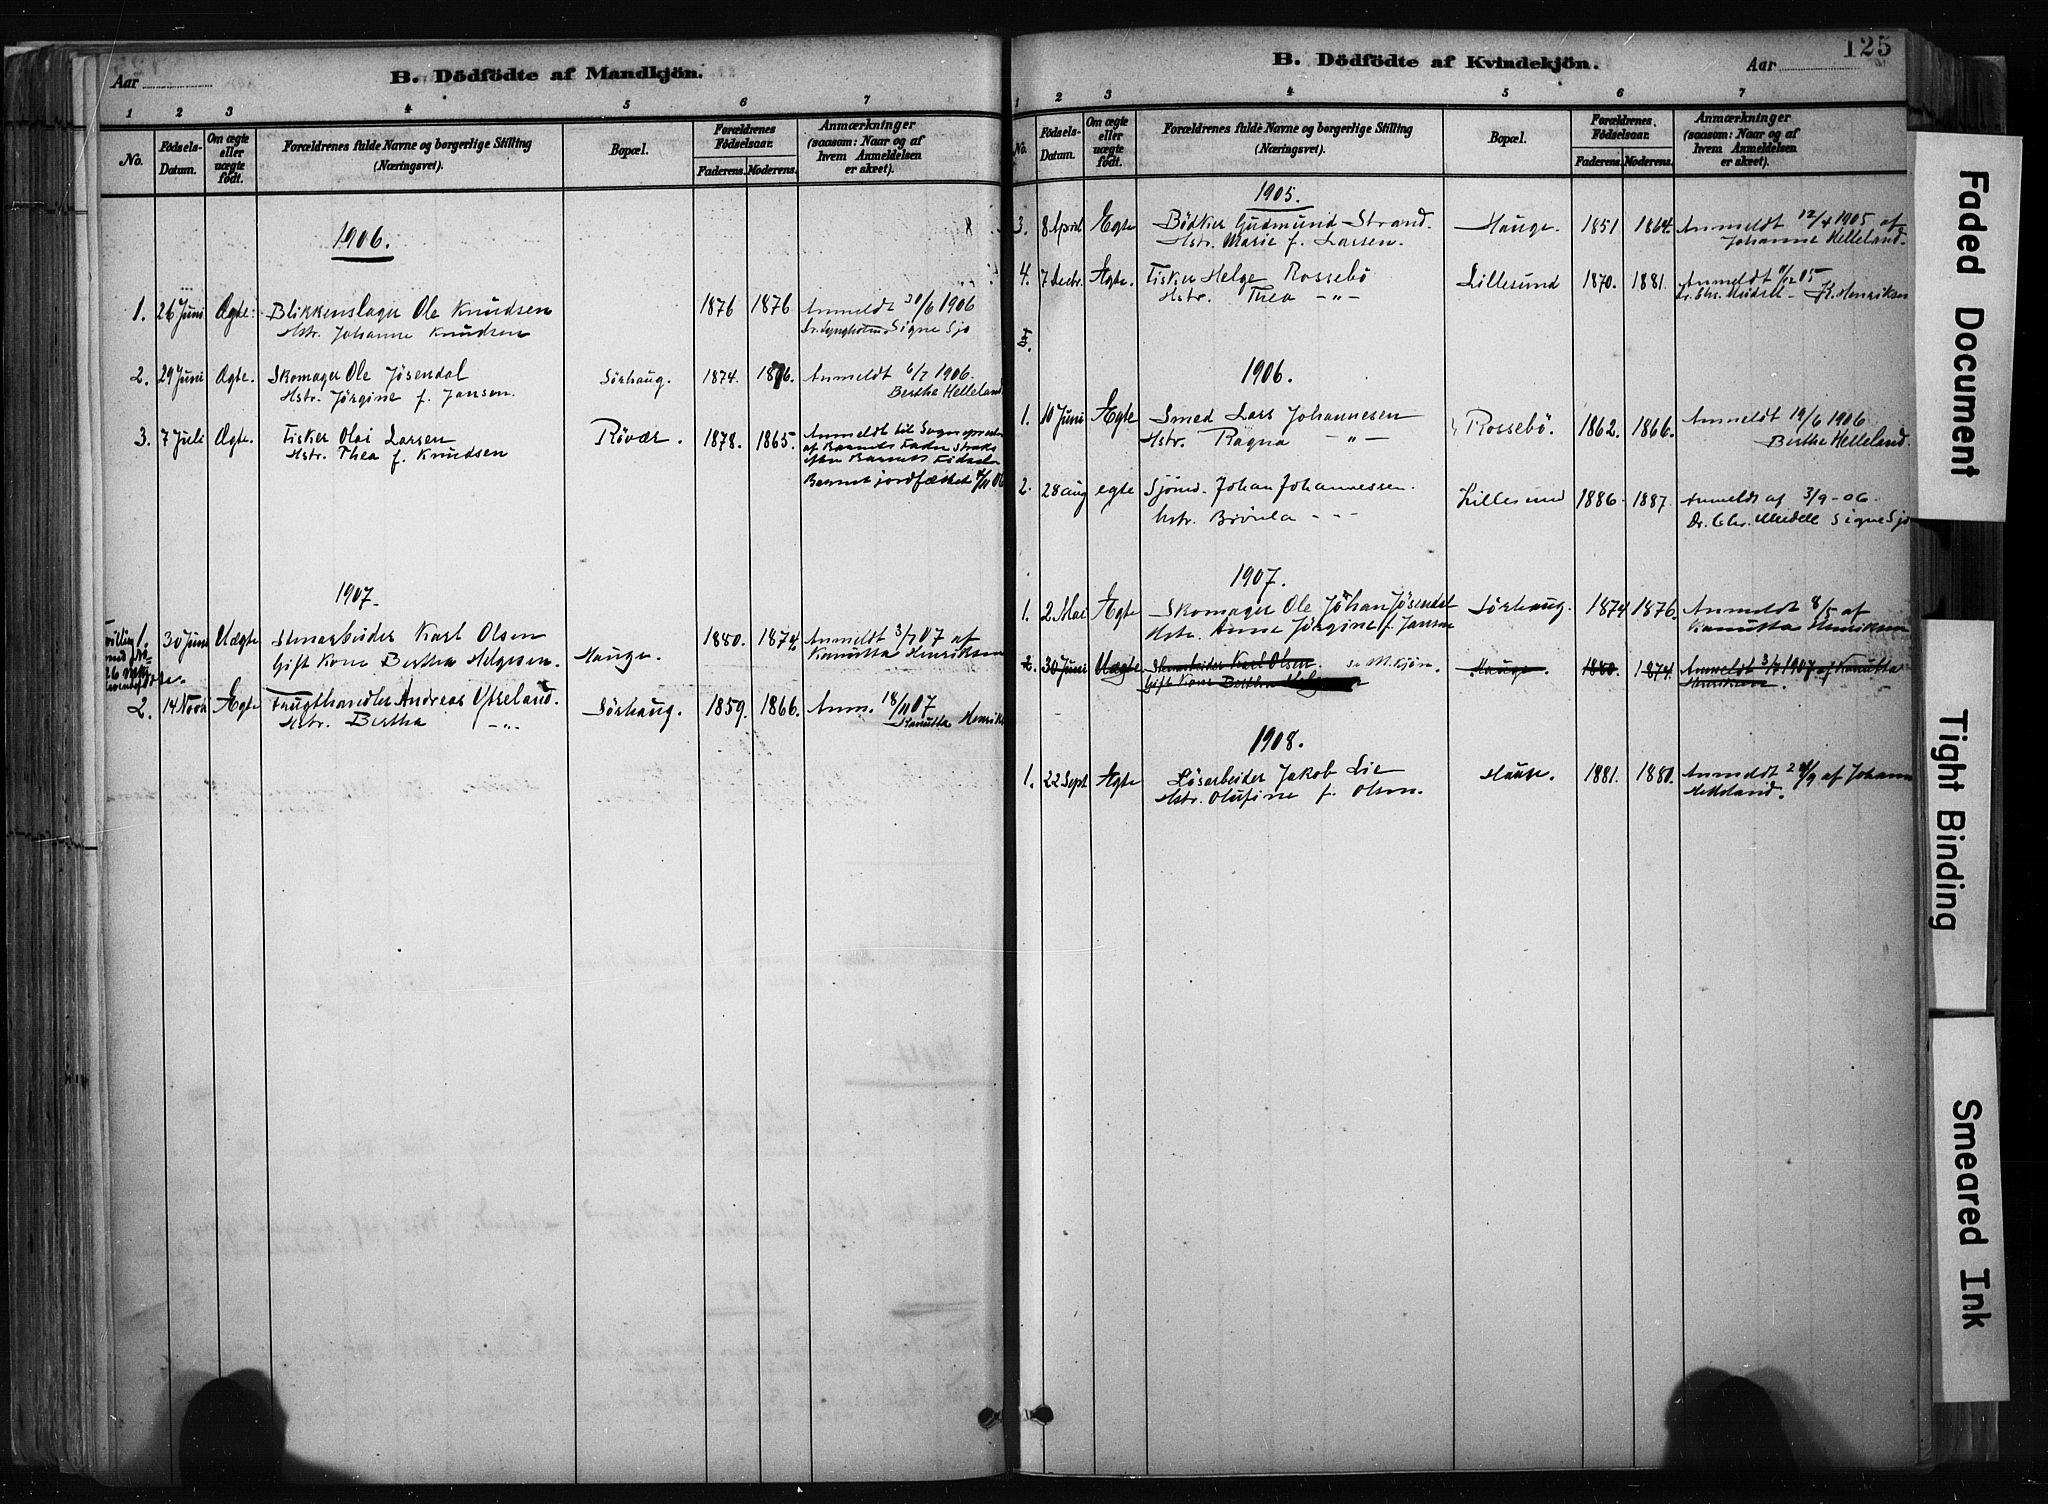 B. Dödfödte af Mandkjön.
Aar
1 2 3 4 5 6 7
No.
Födsels-Datum.
Om ægte eller uægte födt.
Forældrenes fulde Navne og borgerlige Stilling (Næringsvei).
Bopæl.
Forældrenes Födselsaar.
Faderens. Moderens.
Anmærkninger (saasom: Naar og af hvem Anmeldelsen er skeet).
1906.
1. 26 Juni Ægte. Blikkenslager Ole Knudsen 1876 1876 Anmeldt 30/6 1906
Hstr. Johanne Knudsen Signe Sjo
2. 29 Juni Ægte. Skomager Ole Jøsendal Sörhaug. 1874. 1876. Anmeldt 6/7 1906.
Hstr. Jörgine f. Jansen. Bertha Helleland
3. 7 Juli Ægte. Fisker Olai Larsen Rövær. 1878. 1865. Anmeldt til Sognepræsten
Hstr. Thea f. Knudsen af Barnets Fader straks
efter Barnets Födsel
Barnet jordfæstet
1907.
1. 30 Juni Uægte Stenarbeider Karl Olsen 1880. 1874. Anmeldt 3/7 07 af
Gift Kone Bertha Helgesen Hauge. Kanutta Henriksen
2. 14 Novb Ægte Frugthandler Andreas Sörhaug. 1859. 1866. Anm. 18/11 07
Hstr. Bertha -"- Kanutta Henriks
125
B. Dödfödte af Kvindekjön.
Aar
1 2 3 4 5 6 7
No.
Födsels-Datum.
Om ægte eller uægte födt.
Forældrenes fulde Navne og borgerlige Stilling (Næringsvei).
Bopæl.
Forældrenes Födselsaar.
Faderens. Moderens.
Anmærkninger (saasom: Naar og af hvem Anmeldelsen er skeet).
1905.
3. 8 April Ægte Bödker Gudmund Strand. Hauge. 1851 1864. Anmeldt 12/4 1905 af
Hstr. Marie f. Larsen. Johanne Helleland.
4. 7 Decbr. Ægte. Fisker Helge Rossebö Lillesund 1870. 1881. Anmeldt 05
Hstr. Thea -"- K. Henriksen
1906.
1. 10 Juni Ægte Smed Lars Johannesen Rossebö. 1862. 1866. Anmeldt 19/6 1906
Hstr. Ragna -"- Bertha Helleland.
2. 28 aug egte Sjömd. Johan Johannessen. Lillesund 1886. 1887. Anmeldt af 3/9-06.
hstr. Signe Sjo
1907.
1. 2 Mai Ægte Skomager Ole Johan Jösendal Sörhaug. 1874 1876. Anmeldt 8/5 af
Hstr. Anne Jörgine f. Jansen Kanutta Henriksen
2. 30 Juni Uægte Stenarbeider Karl Olsen. se M.kjön. Hauge. 1880. 1874. Anmeldt 3/7 1907 af Kanutta
Gift Kone Bertha Henriksen.
1908.
1. 22 Sept Ægte Lösarbeider Jakob Lie Hauge. 1881. 1880. Anmeldt af Johanne
Hstr. Olufine f. Olsen. Helleland.
Faded Document
Tight Binding
Smeared Ink